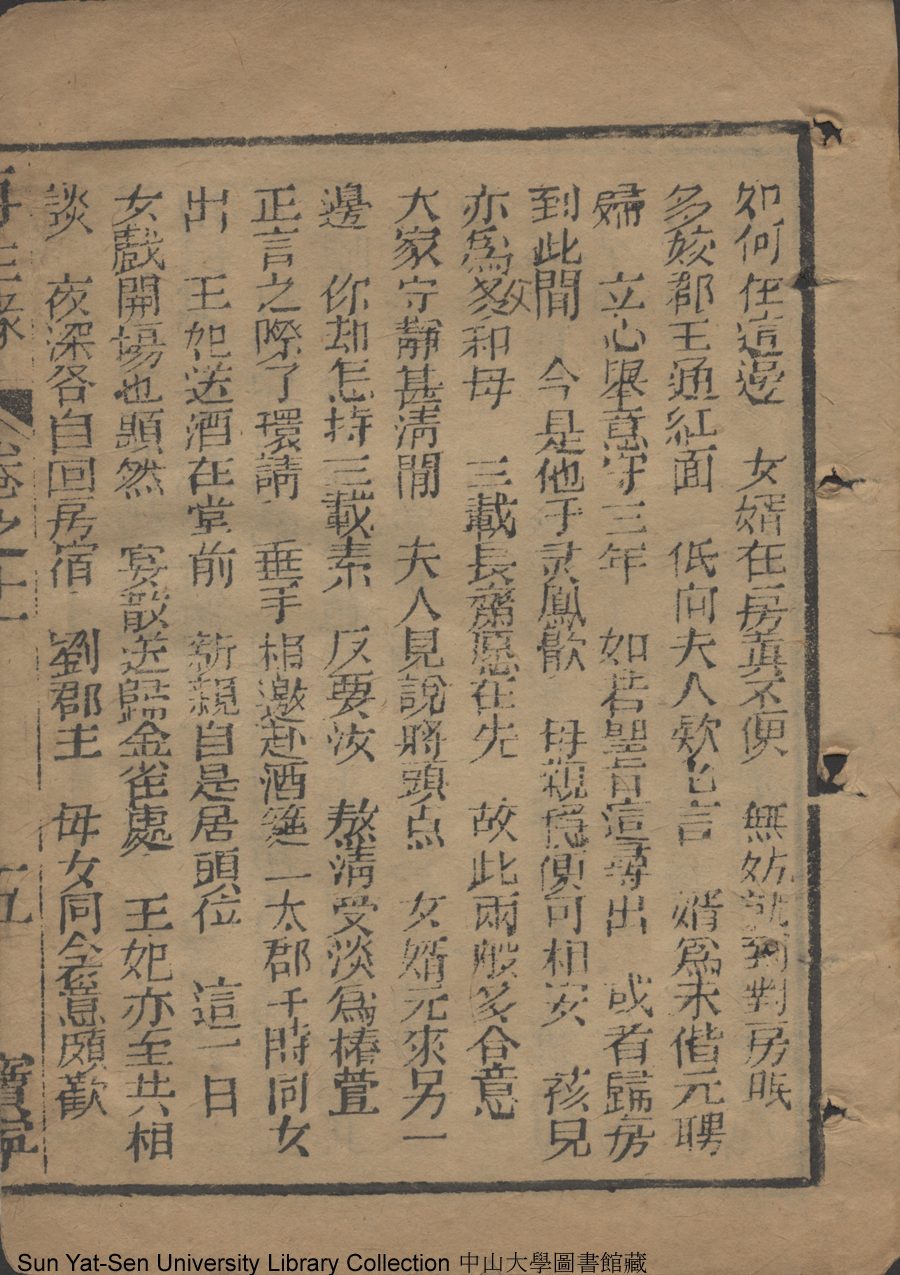 如何在這邊　女婿在房眞不便　無妨就到對房眠
多姣郡王通紅面　低向夫人欵乞言　婿爲未偕元聘
婦　立心舉意守三年　如若聖旨這尋出　或者歸房
到此間　今是他于灵鳳歆　母親隱便可相安　孩兒
亦爲父和母　三載長齋愿在先　故此兩般多合意
大家守靜甚淸閒　夫人見說將頭点　女婿元來另一
邊　你却怎持三載素　反要汝　熬淸受淡爲椿萱
正言之際了環請　垂手相邀赴酒筵　二太郡千時同女
出　王妃送酒在堂前　新親自是居頭位　這一日
女戲開場也顯然　宴散送歸金雀處　王妃亦至共相
談　夜深各自回房宿　劉郡主　母女同全意頗歡
再生緣　卷之十一　十五　寶寧
Sun Yat-Sen University Library Collection 中山大學圖書館藏